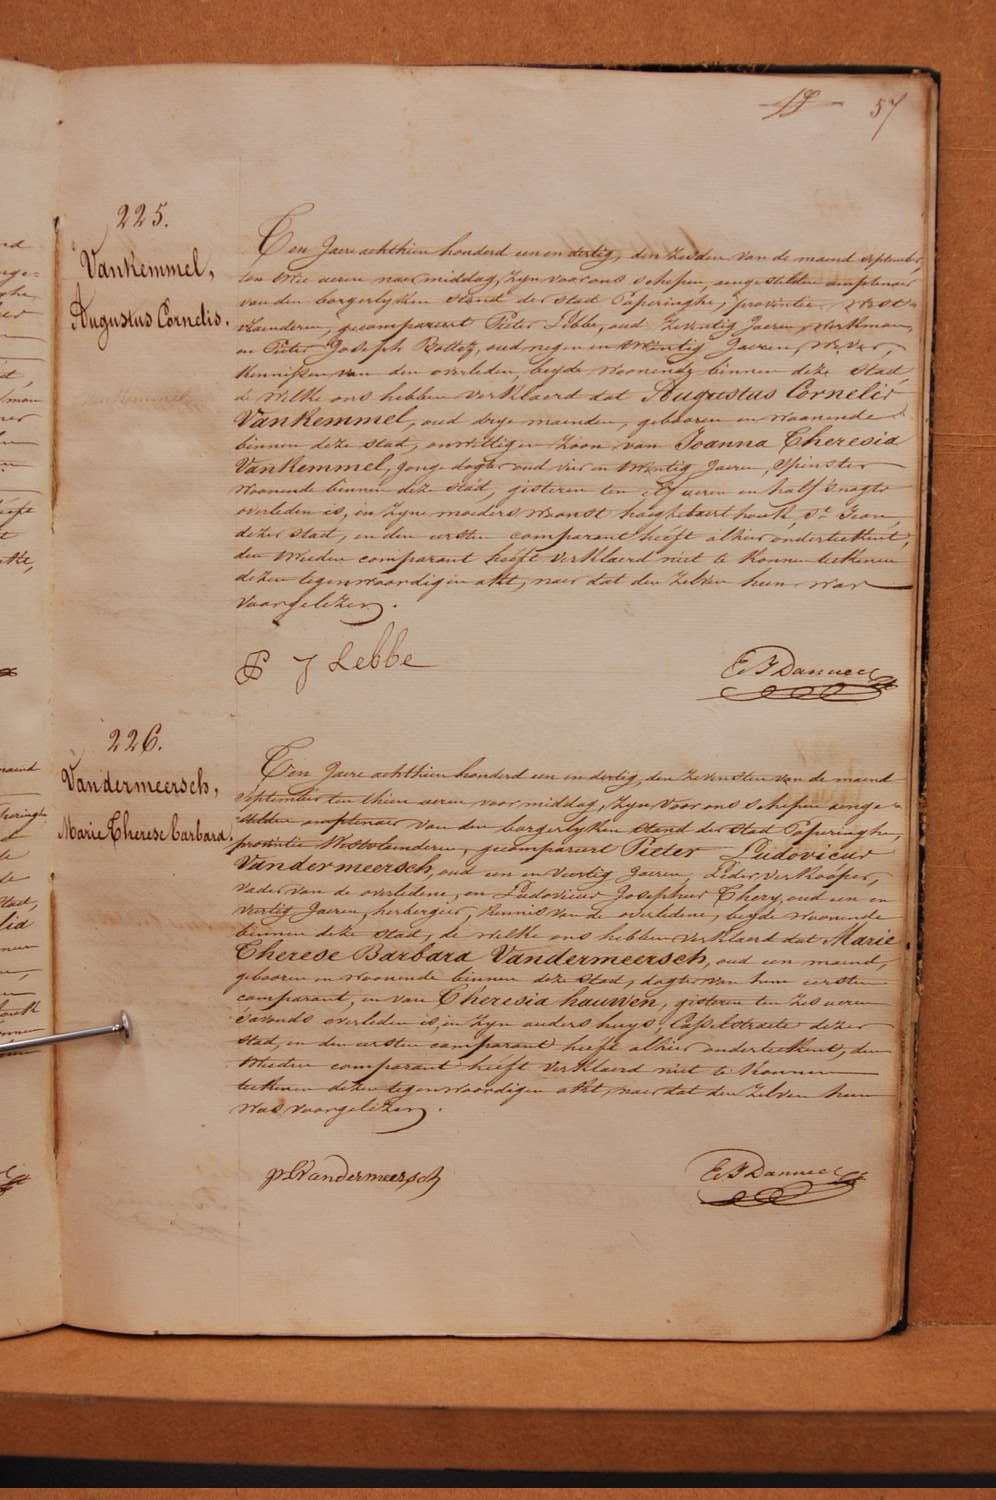 57
225.
VanKemmel,
Augustus Cornelis.
Ten Jaere achthien honderd een en dertig, den zesden van de maend september,
ten twee aeren naer middag, zyn voor ons schepen, aengestelden amptenaer
van den borgerlyken stand der stad Poperinghe, provintie West=
vlaenderen, gecompareert Pieter Lebbe, oud zeventig Jaeren, Werkman,
en Pieter Joseph Bottez, oud negen en twintig Jaeren, Wever,
kennissen van den overleden, beyde woonende binnen deze stad,
de Welke ons hebben verklaerd dat Augustus Cornelis
VanKemmel, oud drye maenden, gebooren en woonende
binnen deze stad, onwettigen zoon van Joanna Theresia
VanKemmel, jonge dogter oud vier en twintig Jaeren, Spinster
woonende binnen deze stad, gisteren ten elf aeren en half 's nagts
overleden is, in zyne moeders woonst haeghebaert hoek, St. Jean,
dezer stad, en den ersten comparant heeft alhier onderteekent,
den tweeden comparant heeft verklaerd niet te konnen teekenen
dezen tegenwoordigen akt, naer dat den zelven hun war
voorgelezen.
P J Lebbe
E. F. Dannee
226.
Vandermeersch,
Marie Therese Barbara.
Ten Jaere achthien honderd een en dertig, den zevensten van de maend
september ten thien aeren voor middag, zyn voor ons schepen aenge=
stelden amptenaer van den borgerlyken stand der stad Poperinghe,
provintie Westvlaenderen, gecompareert Pieter Ludovicus
Vandermeersch, oud een en veertig Jaeren, Leder verkooper,
vader van de overledene, en Ludovicus Josephus Thery, oud een en
veertig Jaeren, herbergier, kennis van de overledene, beyde woonende
binnen deze stad, de welke ons hebben verklaerd dat Marie
Therese Barbara Vandermeersch, oud een maend,
gebooren en woonende binnen deze stad, dogter van hun eersten
comparant, en van Theresia hauwen, gisteren ten zes aeren
s'avonds overleden is, in zyn ouders huys, Casselstraete dezer
stad, en den eersten comparant heeft alhier onderteekent, den
tweeden comparant heeft verklaerd niet te konnen
teekenen dezen tegenwoordigen akt, naer dat den zelven hun
was voorgelezen.
p L Vandermeersch
E. F. Dannee